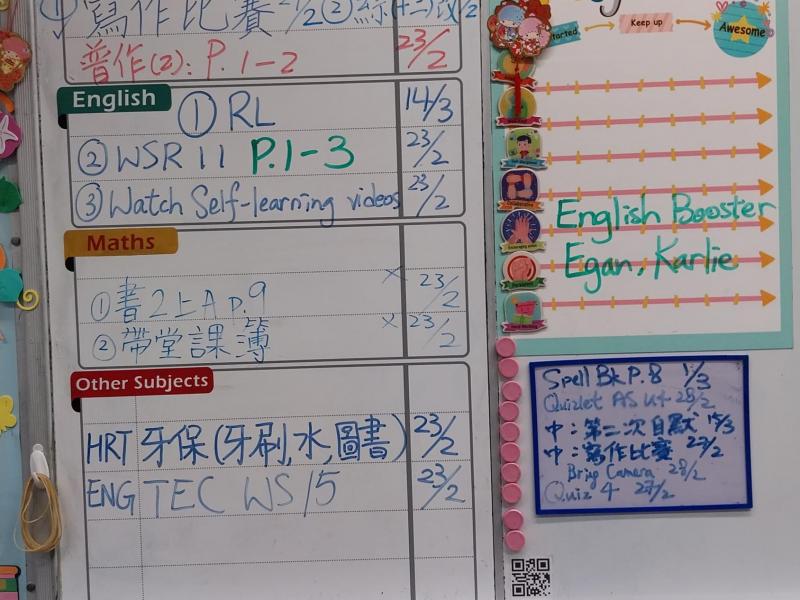 ① 寫作比賽 27/2 ②
普作(2): P.1-2 23/2
English
① RL 14/3
② WSR 11 P.1-3 23/2
③ Watch Self-learning videos 23/2
Maths
① 書2上A p.9 23/2
② 帶堂課簿 23/2
Other Subjects
HRT 牙保(牙刷,水,圖書) 23/2
ENG TEC WS 15 23/2
Keep up
Awesome
English Booster
Egan, Karlie
Spell Bk P.8 1/3
Quizlet AS U4 28/2
中:第二次自默 15/3
中:寫作比賽 27/2
Bring Camera 28/2
Quiz 4 27/2